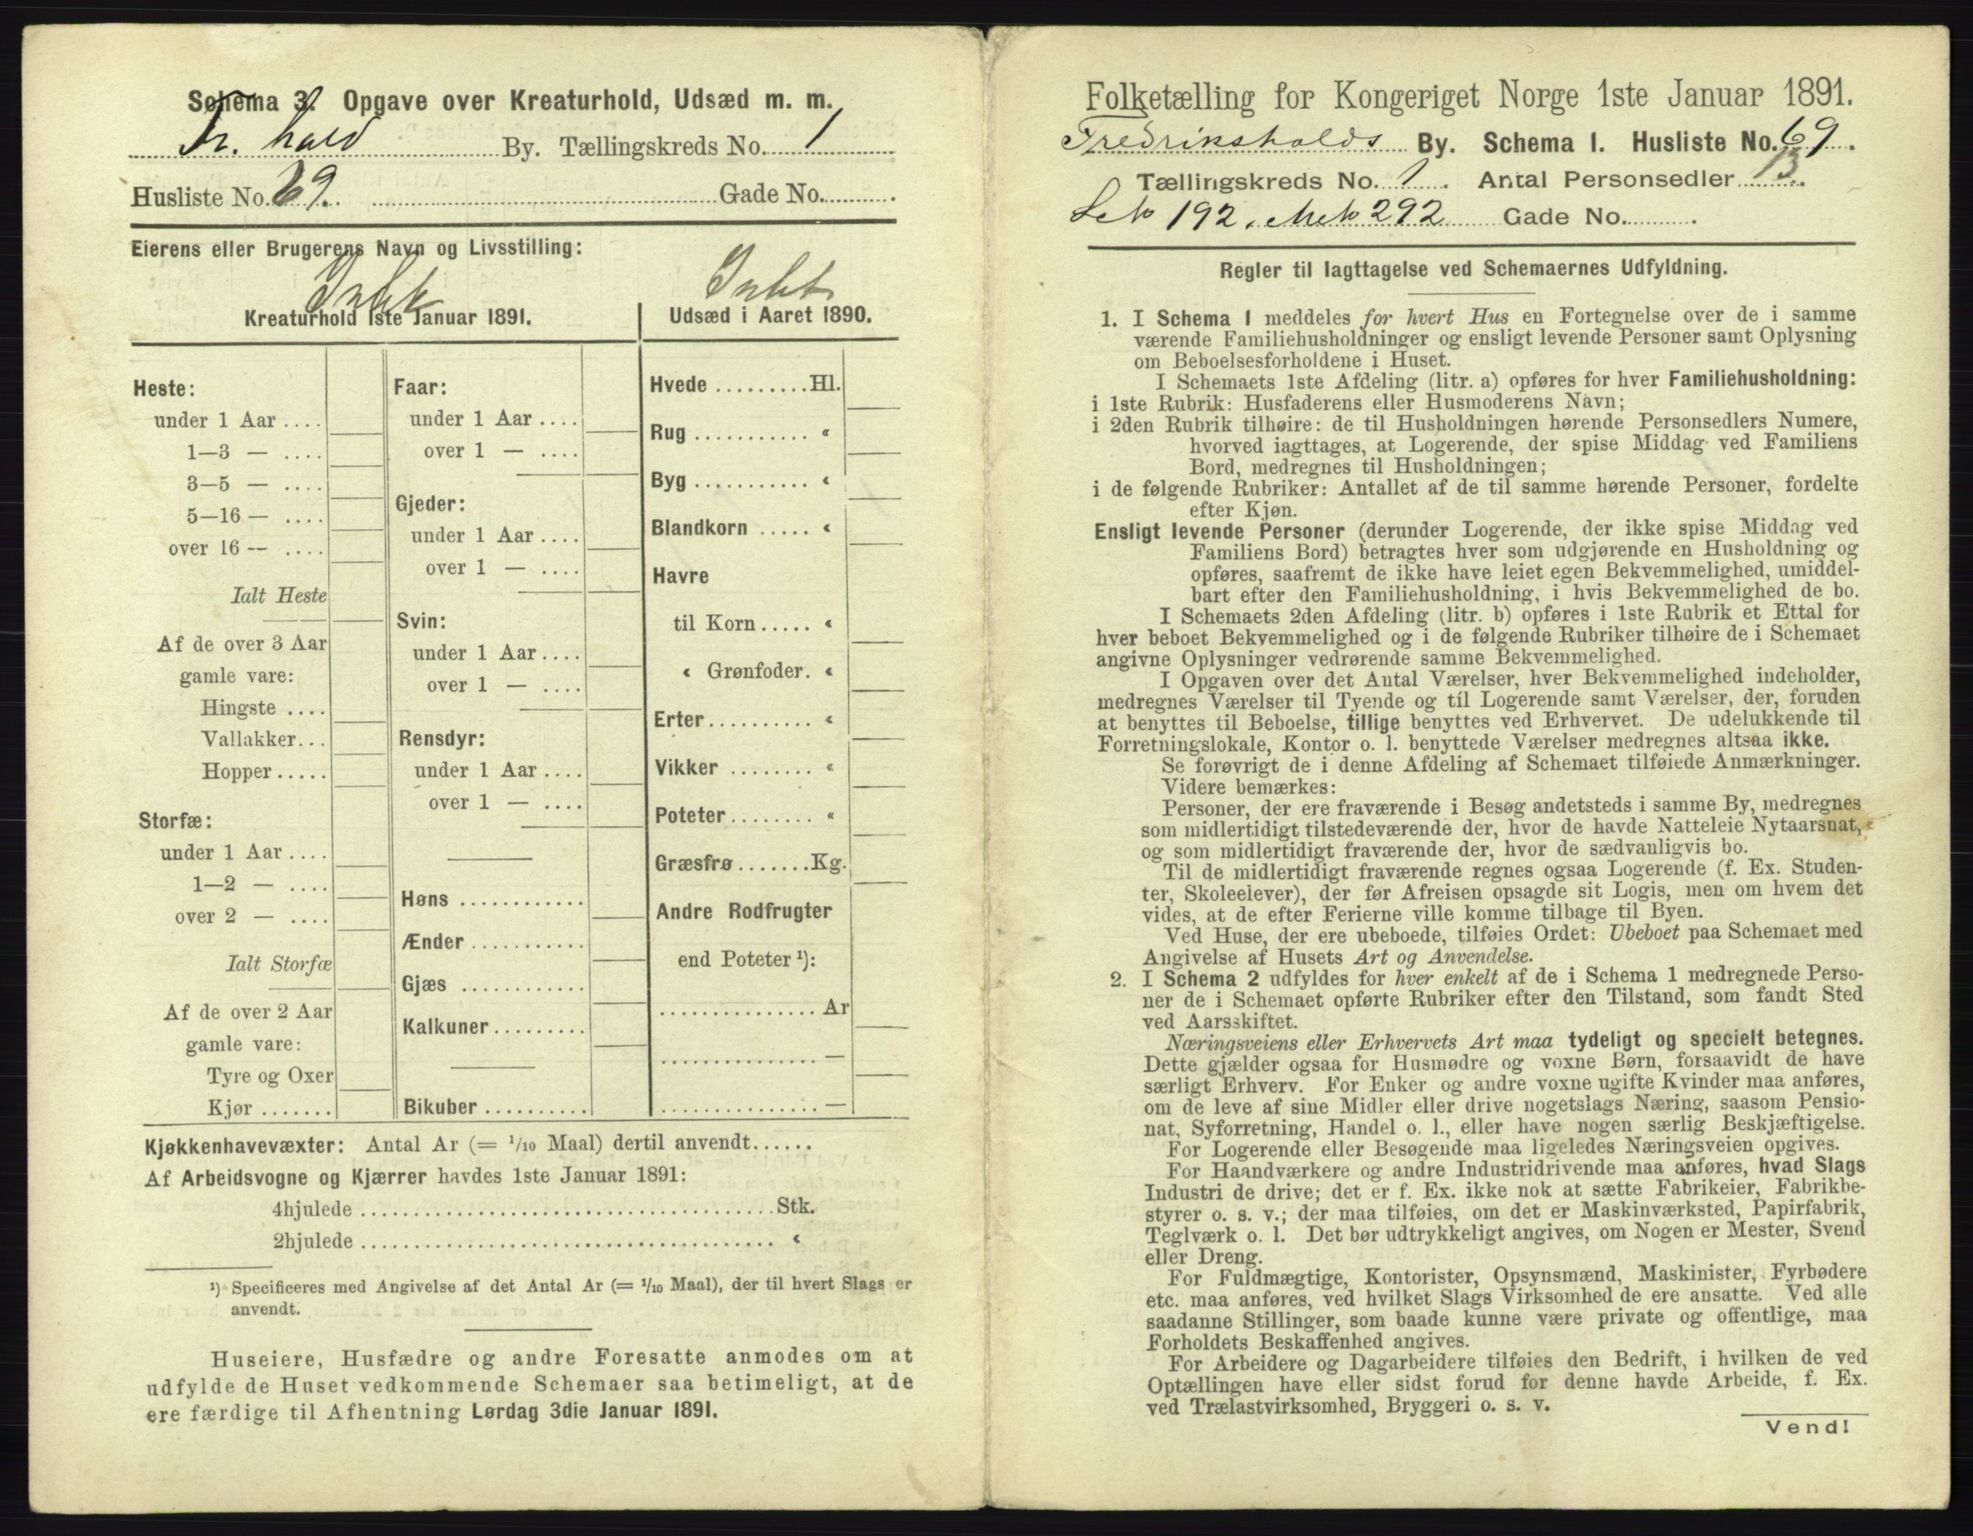 Schema 3. Opgave over Kreaturhold, Udsæd m. m.
Fr. hald By. Tællingskreds No. 1
Husliste No. 69. Gade No. .
Eierens eller Brugerens Navn og Livsstilling:
Intet Intet
Kreaturhold 1ste Januar 1891.
Udsæd i Aaret 1890.
Heste:
under 1 Aar ....
1—3 — ....
3—5 — ....
5—16 — ....
over 16 — ....
Ialt Heste
Af de over 3 Aar
gamle vare:
Hingste ....
Vallakker...
Hopper.....
Storfæ:
under 1 Aar ....
1—2 — ....
over 2 — ....
Ialt Storfæ
Af de over 2 Aar
gamle vare:
Tyre og Oxer
Kjør .......
Faar:
under 1 Aar ....
over 1 — ....
Gjeder:
under 1 Aar ....
over 1 — ....
Svin:
under 1 Aar ....
over 1 — ....
Rensdyr:
under 1 Aar ....
over 1 — ....
Høns ............
Ænder ...........
Gjæs ............
Kalkuner.........
Bikuber ..........
Hvede .........Hl.
Rug ........... "
Byg ........... "
Blandkorn ..... "
Havre
til Korn..... "
" Grønfoder. "
Erter.......... "
Vikker ........ "
Poteter........ "
Græsfrø .......Kg.
Andre Rodfrugter
end Poteter ¹):
............... Ar
............... —
............... —
Kjøkkenhavevæxter: Antal Ar (= 1/10 Maal) dertil anvendt......
Af Arbeidsvogne og Kjærrer havdes 1ste Januar 1891:
4hjulede ......................................Stk.
2hjulede ...................................... "
¹) Specificeres med Angivelse af det Antal Ar (= 1/10 Maal), der til hvert Slags er
anvendt.
Huseiere, Husfædre og andre Foresatte anmodes om at
udfylde de Huset vedkommende Schemaer saa betimeligt, at de
ere færdige til Afhentning Lørdag 3die Januar 1891.
Folketælling for Kongeriget Norge 1ste Januar 1891.
Fredrikshalds By. Schema 1. Husliste No. 69.
Tællingskreds No. 1. Antal Personsedler 13.
192. 292 Gade No. .
Regler til Iagttagelse ved Schemaernes Udfyldning.
1. I Schema 1 meddeles for hvert Hus en Fortegnelse over de i samme
værende Familiehusholdninger og ensligt levende Personer samt Oplysning
om Beboelsesforholdene i Huset.
I Schemaets 1ste Afdeling (litr. a) opføres for hver Familiehusholdning:
i 1ste Rubrik: Husfaderens eller Husmoderens Navn;
i 2den Rubrik tilhøire: de til Husholdningen hørende Personsedlers Numere,
hvorved iagttages, at Logerende, der spise Middag ved Familiens
Bord, medregnes til Husholdningen;
i de følgende Rubriker: Antallet af de til samme hørende Personer, fordelte
efter Kjøn.
Ensligt levende Personer (derunder Logerende, der ikke spise Middag ved
Familiens Bord) betragtes hver som udgjørende en Husholdning og
opføres, saafremt de ikke have leiet egen Bekvemmelighed, umiddel-
bart efter den Familiehusholdning, i hvis Bekvemmelighed de bo.
I Schemaets 2den Afdeling (litr. b) opføres i 1ste Rubrik et Ettal for
hver beboet Bekvemmelighed og i de følgende Rubriker tilhøire de i Schemaet
angivne Oplysninger vedrørende samme Bekvemmelighed.
I Opgaven over det Antal Værelser, hver Bekvemmelighed indeholder,
medregnes Værelser til Tyende og til Logerende samt Værelser, der, foruden
at benyttes til Beboelse, tillige benyttes ved Erhvervet. De udelukkende til
Forretningslokale, Kontor o. l. benyttede Værelser medregnes altsaa ikke.
Se forøvrigt de i denne Afdeling af Schemaet tilføiede Anmærkninger.
Videre bemærkes:
Personer, der ere fraværende i Besøg andetsteds i samme By, medregnes
som midlertidigt tilstedeværende der, hvor de havde Natteleie Nytaarsnat,
og som midlertidigt fraværende der, hvor de sædvanligvis bo.
Til de midlertidigt fraværende regnes ogsaa Logerende (f. Ex. Studen-
ter, Skoleelever), der før Afreisen opsagde sit Logis, men om hvem det
vides, at de efter Ferierne ville komme tilbage til Byen.
Ved Huse, der ere ubeboede, tilføies Ordet: Ubeboet paa Schemaet med
Angivelse af Husets Art og Anvendelse.
2. I Schema 2 udfyldes for hver enkelt af de i Schema 1 medregnede Perso-
ner de i Schemaet opførte Rubriker efter den Tilstand, som fandt Sted
ved Aarsskiftet.
Næringsveiens eller Erhvervets Art maa tydeligt og specielt betegnes.
Dette gjælder ogsaa for Husmødre og voxne Børn, forsaavidt de have
særligt Erhverv. For Enker og andre voxne ugifte Kvinder maa anføres,
om de leve af sine Midler eller drive nogetslags Næring, saasom Pensio-
nat, Syforretning, Handel o. l., eller have nogen særlig Beskjæftigelse.
For Logerende eller Besøgende maa ligeledes Næringsveien opgives.
For Haandværkere og andre Industridrivende maa anføres, hvad Slags
Industri de drive; det er f. Ex. ikke nok at sætte Fabrikeier, Fabrikbe-
styrer o. s. v.; der maa tilføies, om det er Maskinværksted, Papirfabrik,
Teglværk o. l. Det bør udtrykkeligt angives, om Nogen er Mester, Svend
eller Dreng.
For Fuldmægtige, Kontorister, Opsynsmænd, Maskinister, Fyrbødere
etc. maa anføres, ved hvilket Slags Virksomhed de ere ansatte. Ved alle
saadanne Stillinger, som baade kunne være private og offentlige, maa
Forholdets Beskaffenhed angives.
For Arbeidere og Dagarbeidere tilføies den Bedrift, i hvilken de ved
Optællingen have eller sidst forud for denne havde Arbeide, f. Ex.
ved Trælastvirksomhed, Bryggeri o. s. v.
Vend!